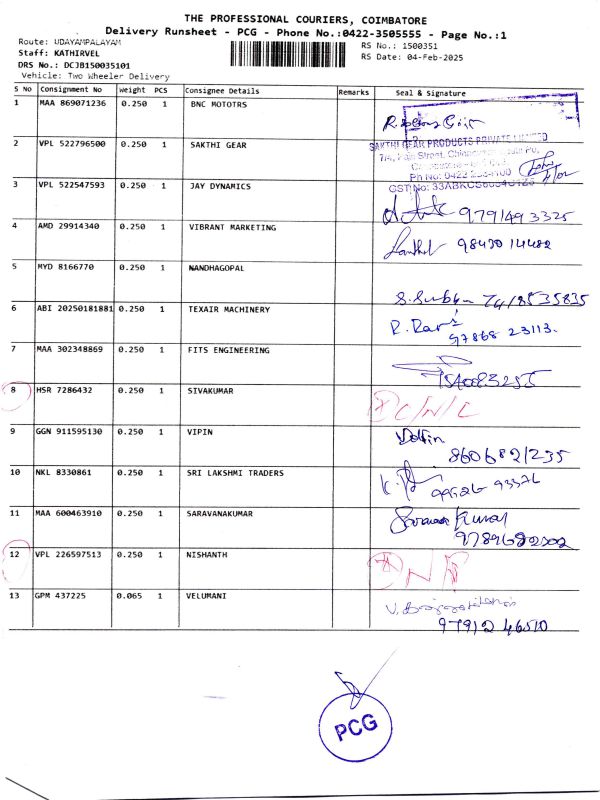 THE PROFESSIONAL COURIERS, COIMBATORE
Delivery Runsheet - PCG - Phone No.:0422-3505555 - Page No.:1
Route: UDAYAMPALAYAM
RS No.: 1500351
Staff: KATHIRVEL
RS Date: 04-Feb-2025
DRS No.: DCJB150035101
Vehicle: Two Wheeler Delivery
S No Consignment No Weight PCS Consignee Details Remarks Seal & Signature
1 MAA 869071236 0.250 1 BNC MOTOTRS
2 VPL 522796500 0.250 1 SAKTHI GEAR SAKTHI GEAR PRODUCTS PRIVATE LIMITED
Main Street,
Ph No: 0422
GST No:
3 VPL 522547593 0.250 1 JAY DYNAMICS
9791493325
4 AMD 29914340 0.250 1 VIBRANT MARKETING
98430 14482
5 MYD 8166770 0.250 1 NANDHAGOPAL
7418535835
6 ABI 20250181881 0.250 1 TEXAIR MACHINERY
97868 23113.
7 MAA 302348869 0.250 1 FITS ENGINEERING
8 HSR 7286432 0.250 1 SIVAKUMAR C/N/L
9 GGN 911595130 0.250 1 VIPIN
8606821235
10 NKL 8330861 0.250 1 SRI LAKSHMI TRADERS
99526 93376
11 MAA 600463910 0.250 1 SARAVANAKUMAR
Saravana Kumar
12 VPL 226597513 0.250 1 NISHANTH
13 GPM 437225 0.065 1 VELUMANI
97912 46510
PCG